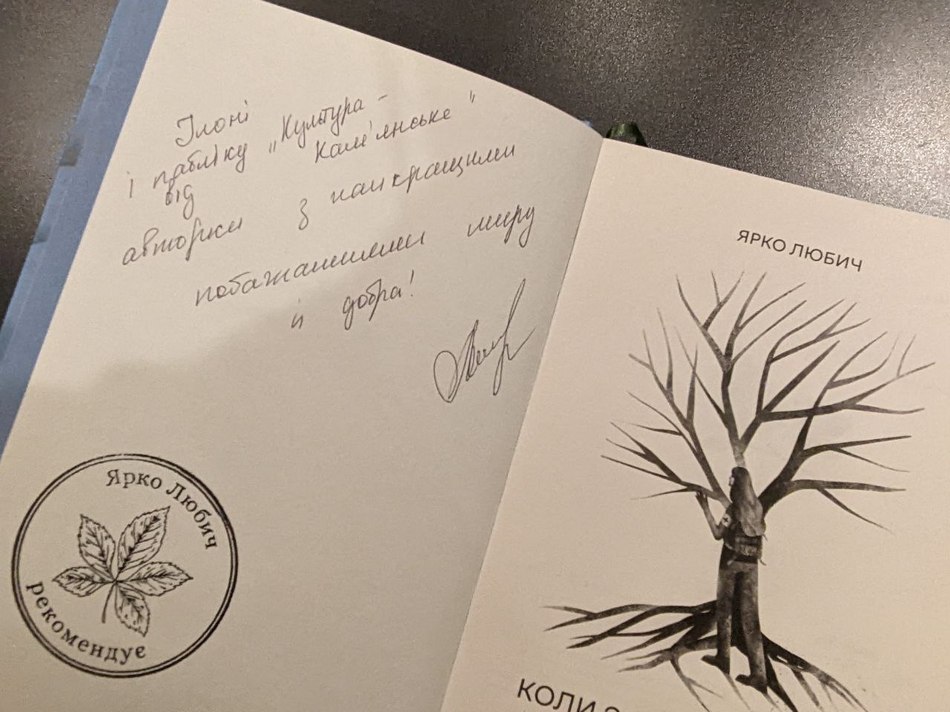 Ілоні
і пабліку „Культура -
Кам'янське"
від
авторки з найкращими
побажаннями миру
й добра!
Ярко Любич
рекомендує
ЯРКО ЛЮБИЧ
КОЛИ